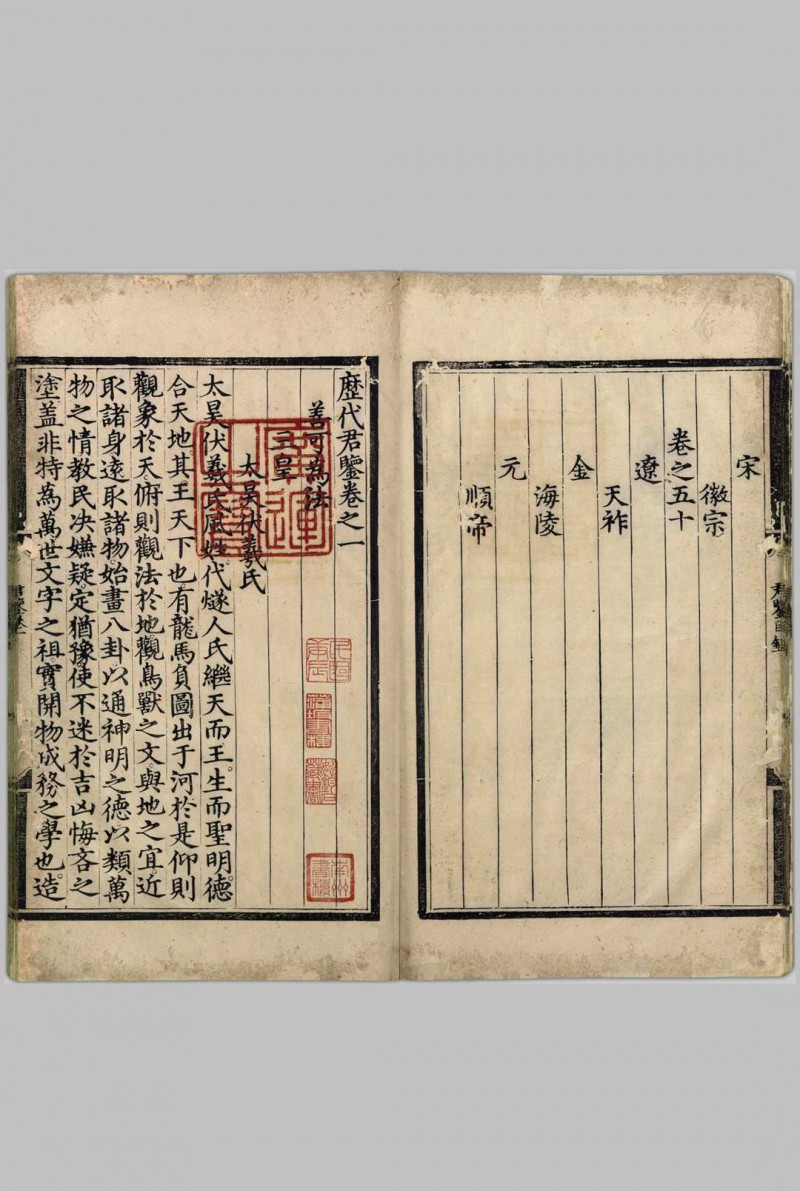 宋
徽宗
卷之五十
遼
天祚
金
海陵
元
順帝
歷代君鑒卷之一
善可為法
三皇
太昊伏羲氏
太昊伏羲氏風姓代燧人氏繼天而王生而聖明德
合天地其王天下也有龍馬負圖出于河於是仰則
觀象於天俯則觀法於地觀鳥獸之文與地之宜近
取諸身遠取諸物始畫八卦以通神明之德以類萬
物之情教民決嫌疑定猶豫使不迷於吉凶悔吝之
塗蓋非特為萬世文字之祖實開物成務之學也造
君鑒卷一
君鑒目錄